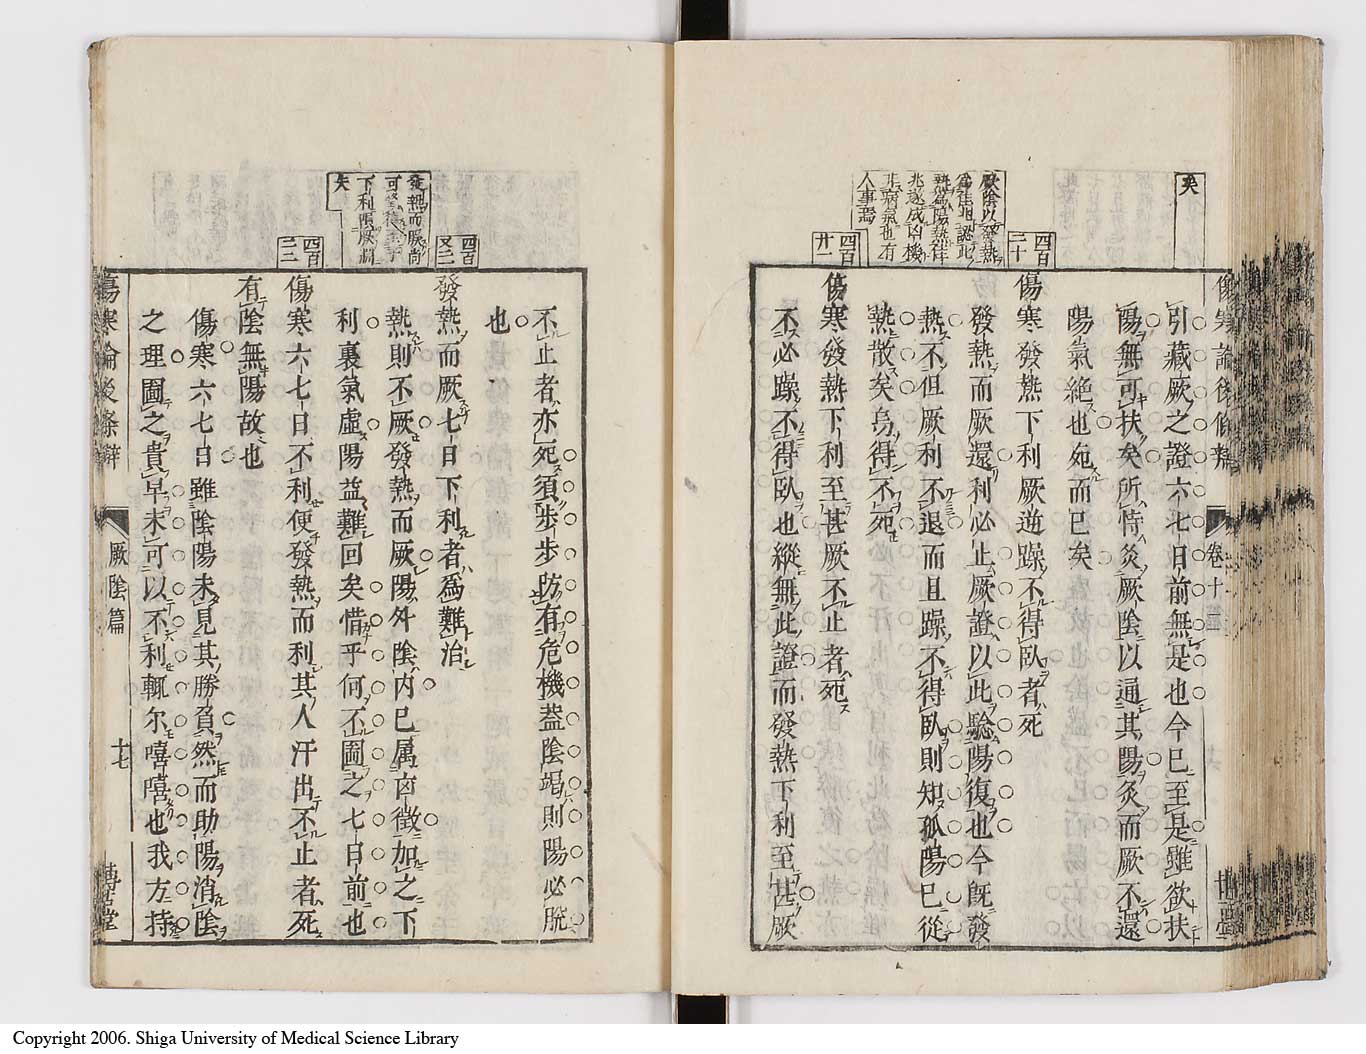 矣
引藏厥之證六七日前無是也今已至是雖欲扶
陽無可扶矣所恃灸厥陰以通其陽灸而厥不還
陽氣絕也死而已矣
四百二十
傷寒發熱下利厥逆躁不得臥者死
厥陰以發熱
爲佳兆認此
熱爲陽熱佳
兆遂成凶機
非病氣也有
人事焉
發熱而厥還利必止厥證以此驗陽復也今既發
熱不但厥利不退而且躁不得臥則知孤陽已從
熱散矣烏得不死
四百廿一
傷寒發熱下利至甚厥不止者死
不必躁不得臥也縱無此證而發熱下利至甚厥
卷十二
不止者亦死須步步防有危機蓋陰竭則陽必脫
也
四百又二
發熱而厥七日下利者爲難治
發熱而厥尚
下利
矣
熱則不厥發熱而厥陽外陰內已属危徵加之下
利裏氣虛陽益難回矣惜乎何不圖之七日前也
四百二二
傷寒六七日不利便發熱而利其人汗出不止者死
有陰無陽故也
傷寒六七日雖陰陽未見其勝負然而助陽消陰
之理圖之貴早未可以不利輒尔嘻嘻也我方持
傷寒論後條辯
厥陰篇
十七
博古堂
Copyright 2006. Shiga University of Medical Science Library